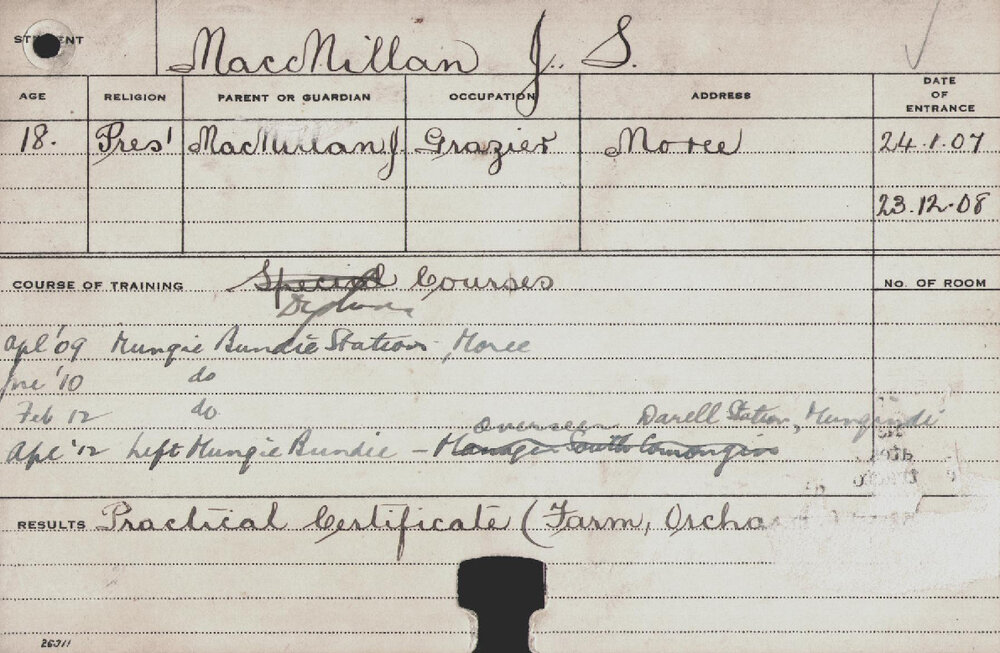 STUDENT MacMillan J. S.
AGE RELIGION PARENT OR GUARDIAN OCCUPATION ADDRESS DATE OF ENTRANCE
18. Pres' MacMillan J. Grazier Moree 24.1.07
23.12.08
COURSE OF TRAINING Special Courses No. OF ROOM
Diploma
Apl '09 Mungie Bundie Station, Moree
June '10 do
Feb 12 do
Overseer Darell Station, Mungindi
Apl '12 Left Mungie Bundie - Manager South
RESULTS Practical Certificate (Farm, Orchard
26311